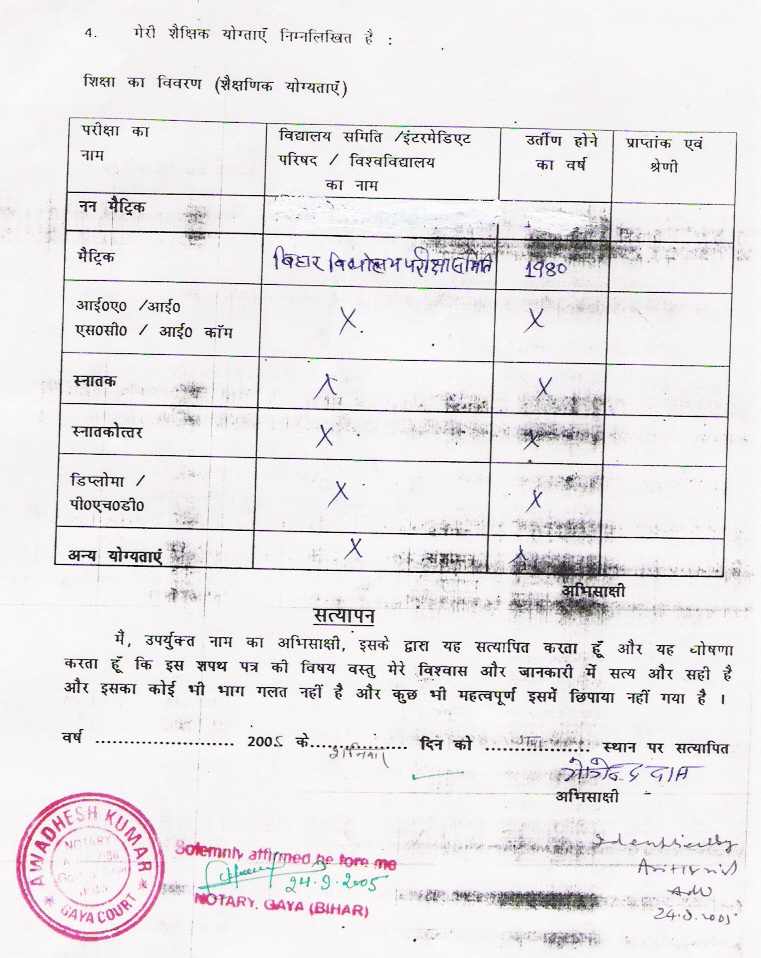 4. मेरी शैक्षिक योग्ताएँ निम्नलिखित है :
शिक्षा का विवरण (शैक्षणिक योग्यताएँ)
परीक्षा का
नाम
विद्यालय समिति /इंटरमेडिएट
परिषद / विश्वविद्यालय
का नाम
उर्तीण होने
का वर्ष
प्राप्तांक एवं
श्रेणी
नन मैट्रिक
मैट्रिक बिहार विद्यालय परीक्षा समिति 1980
आई0ए0 /आई0
एस0सी0 / आई0 कॉम X X
स्नातक X X
स्नातकोत्तर X X
डिप्लोमा /
पी0एच0डी0 X X
अन्य योग्यताएँ X X
अभिसाक्षी
सत्यापन
मै, उपर्युक्त नाम का अभिसाक्षी, इसके द्वारा यह सत्यापित करता हूँ और यह घोषणा
करता हूँ कि इस शपथ पत्र की विषय वस्तु मेरे विश्वास और जानकारी में सत्य और सही है
और इसका कोई भी भाग गलत नहीं है और कुछ भी महत्वपूर्ण इसमें छिपाया नहीं गया है ।
वर्ष ........................ 2005 के..शनिवार.. दिन को .................. स्थान पर सत्यापित
अभिसाक्षी
AWADHESH KUMAR
NOTARY
GAYA COURT
Solemnly affirmed before me
24.9.2005
NOTARY, GAYA (BIHAR)
Adv
24.9.2005